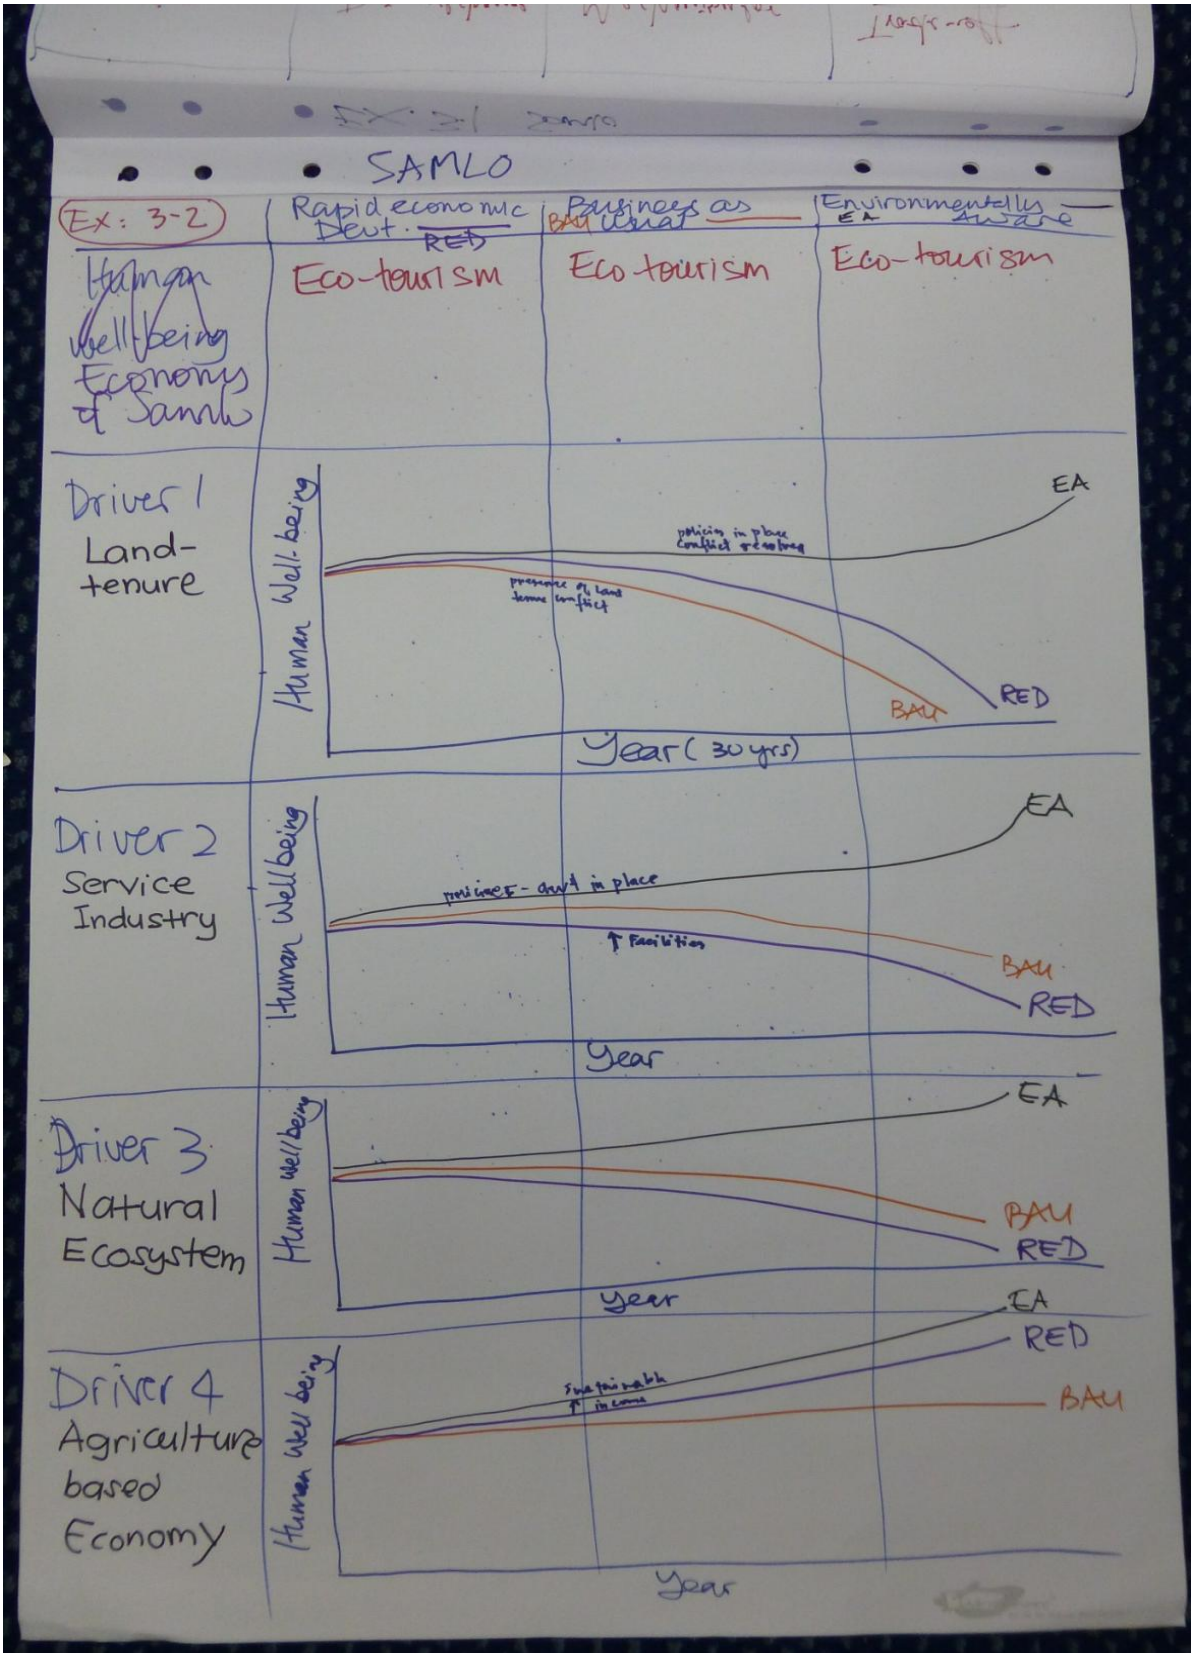 EX. 3-1 Samlo
SAMLO
Ex: 3-2
Rapid economic
Devt.
RED
Business as
BAU usual
Environmentally
EA Aware
Human
well-being
Economy
of Samlo
Eco-tourism
Eco tourism
Eco-tourism
Driver 1
Land-
tenure
Human Well-being
EA
policies in place
conflict resolved
presence of land
tenure conflict
BAU
RED
Year (30 yrs)
Driver 2
Service
Industry
Human Wellbeing
EA
in place
↑ Facilities
BAU
RED
Year
Driver 3
Natural
Ecosystem
Human Wellbeing
EA
BAU
RED
Year
Driver 4
Agriculture
based
Economy
Human Well being
EA
RED
Sustainable
↑ income
BAU
Year